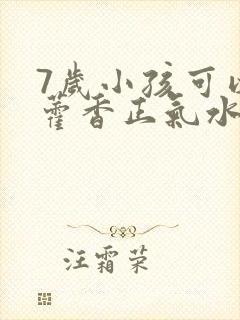 7歲小孩可以
藿香正氣水
汪霜荣